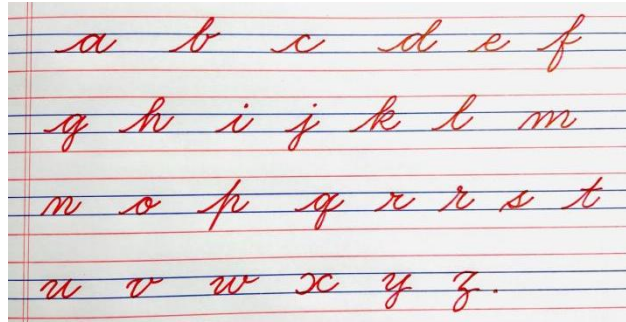 a b c d e f
g h i j k l m
n o p q r r s t
u v w x y z.